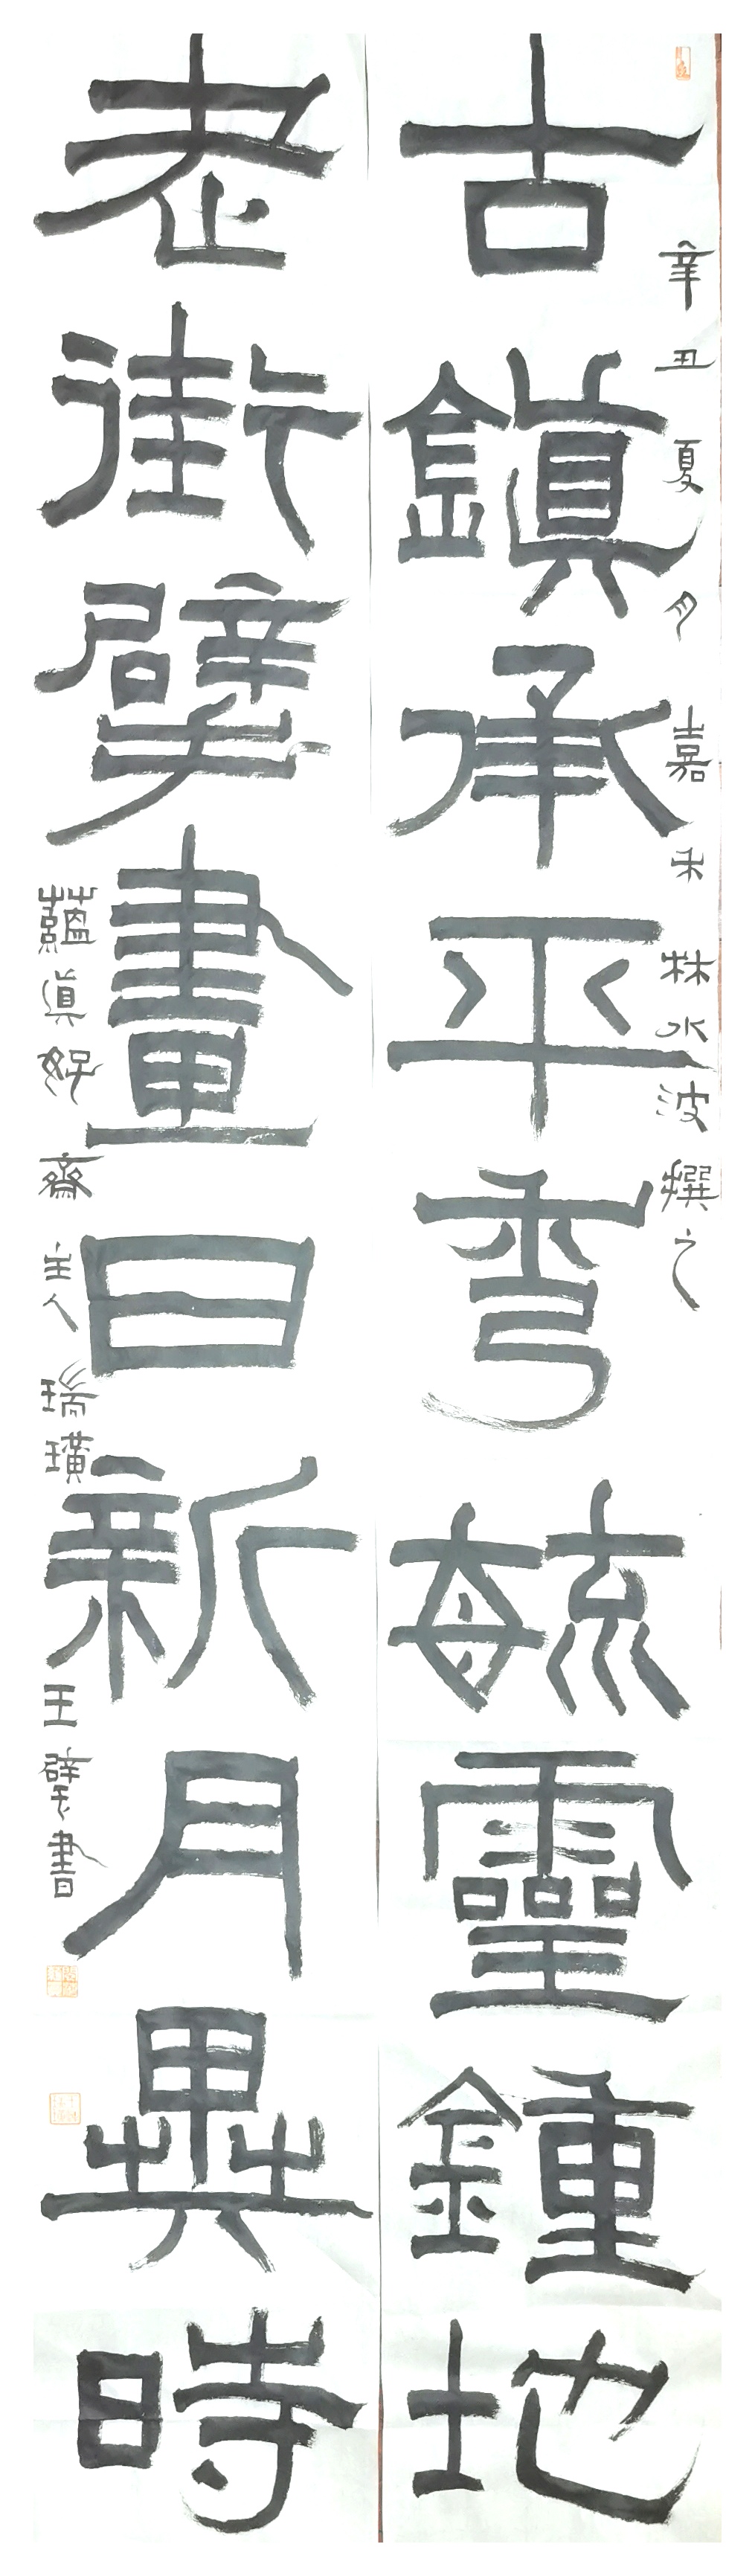 辛丑夏月嘉禾林水波撰之
古鎮承平秀毓靈鍾地
老街擘畫日新月異時
蘊真好齋主人瑞璜王擘書